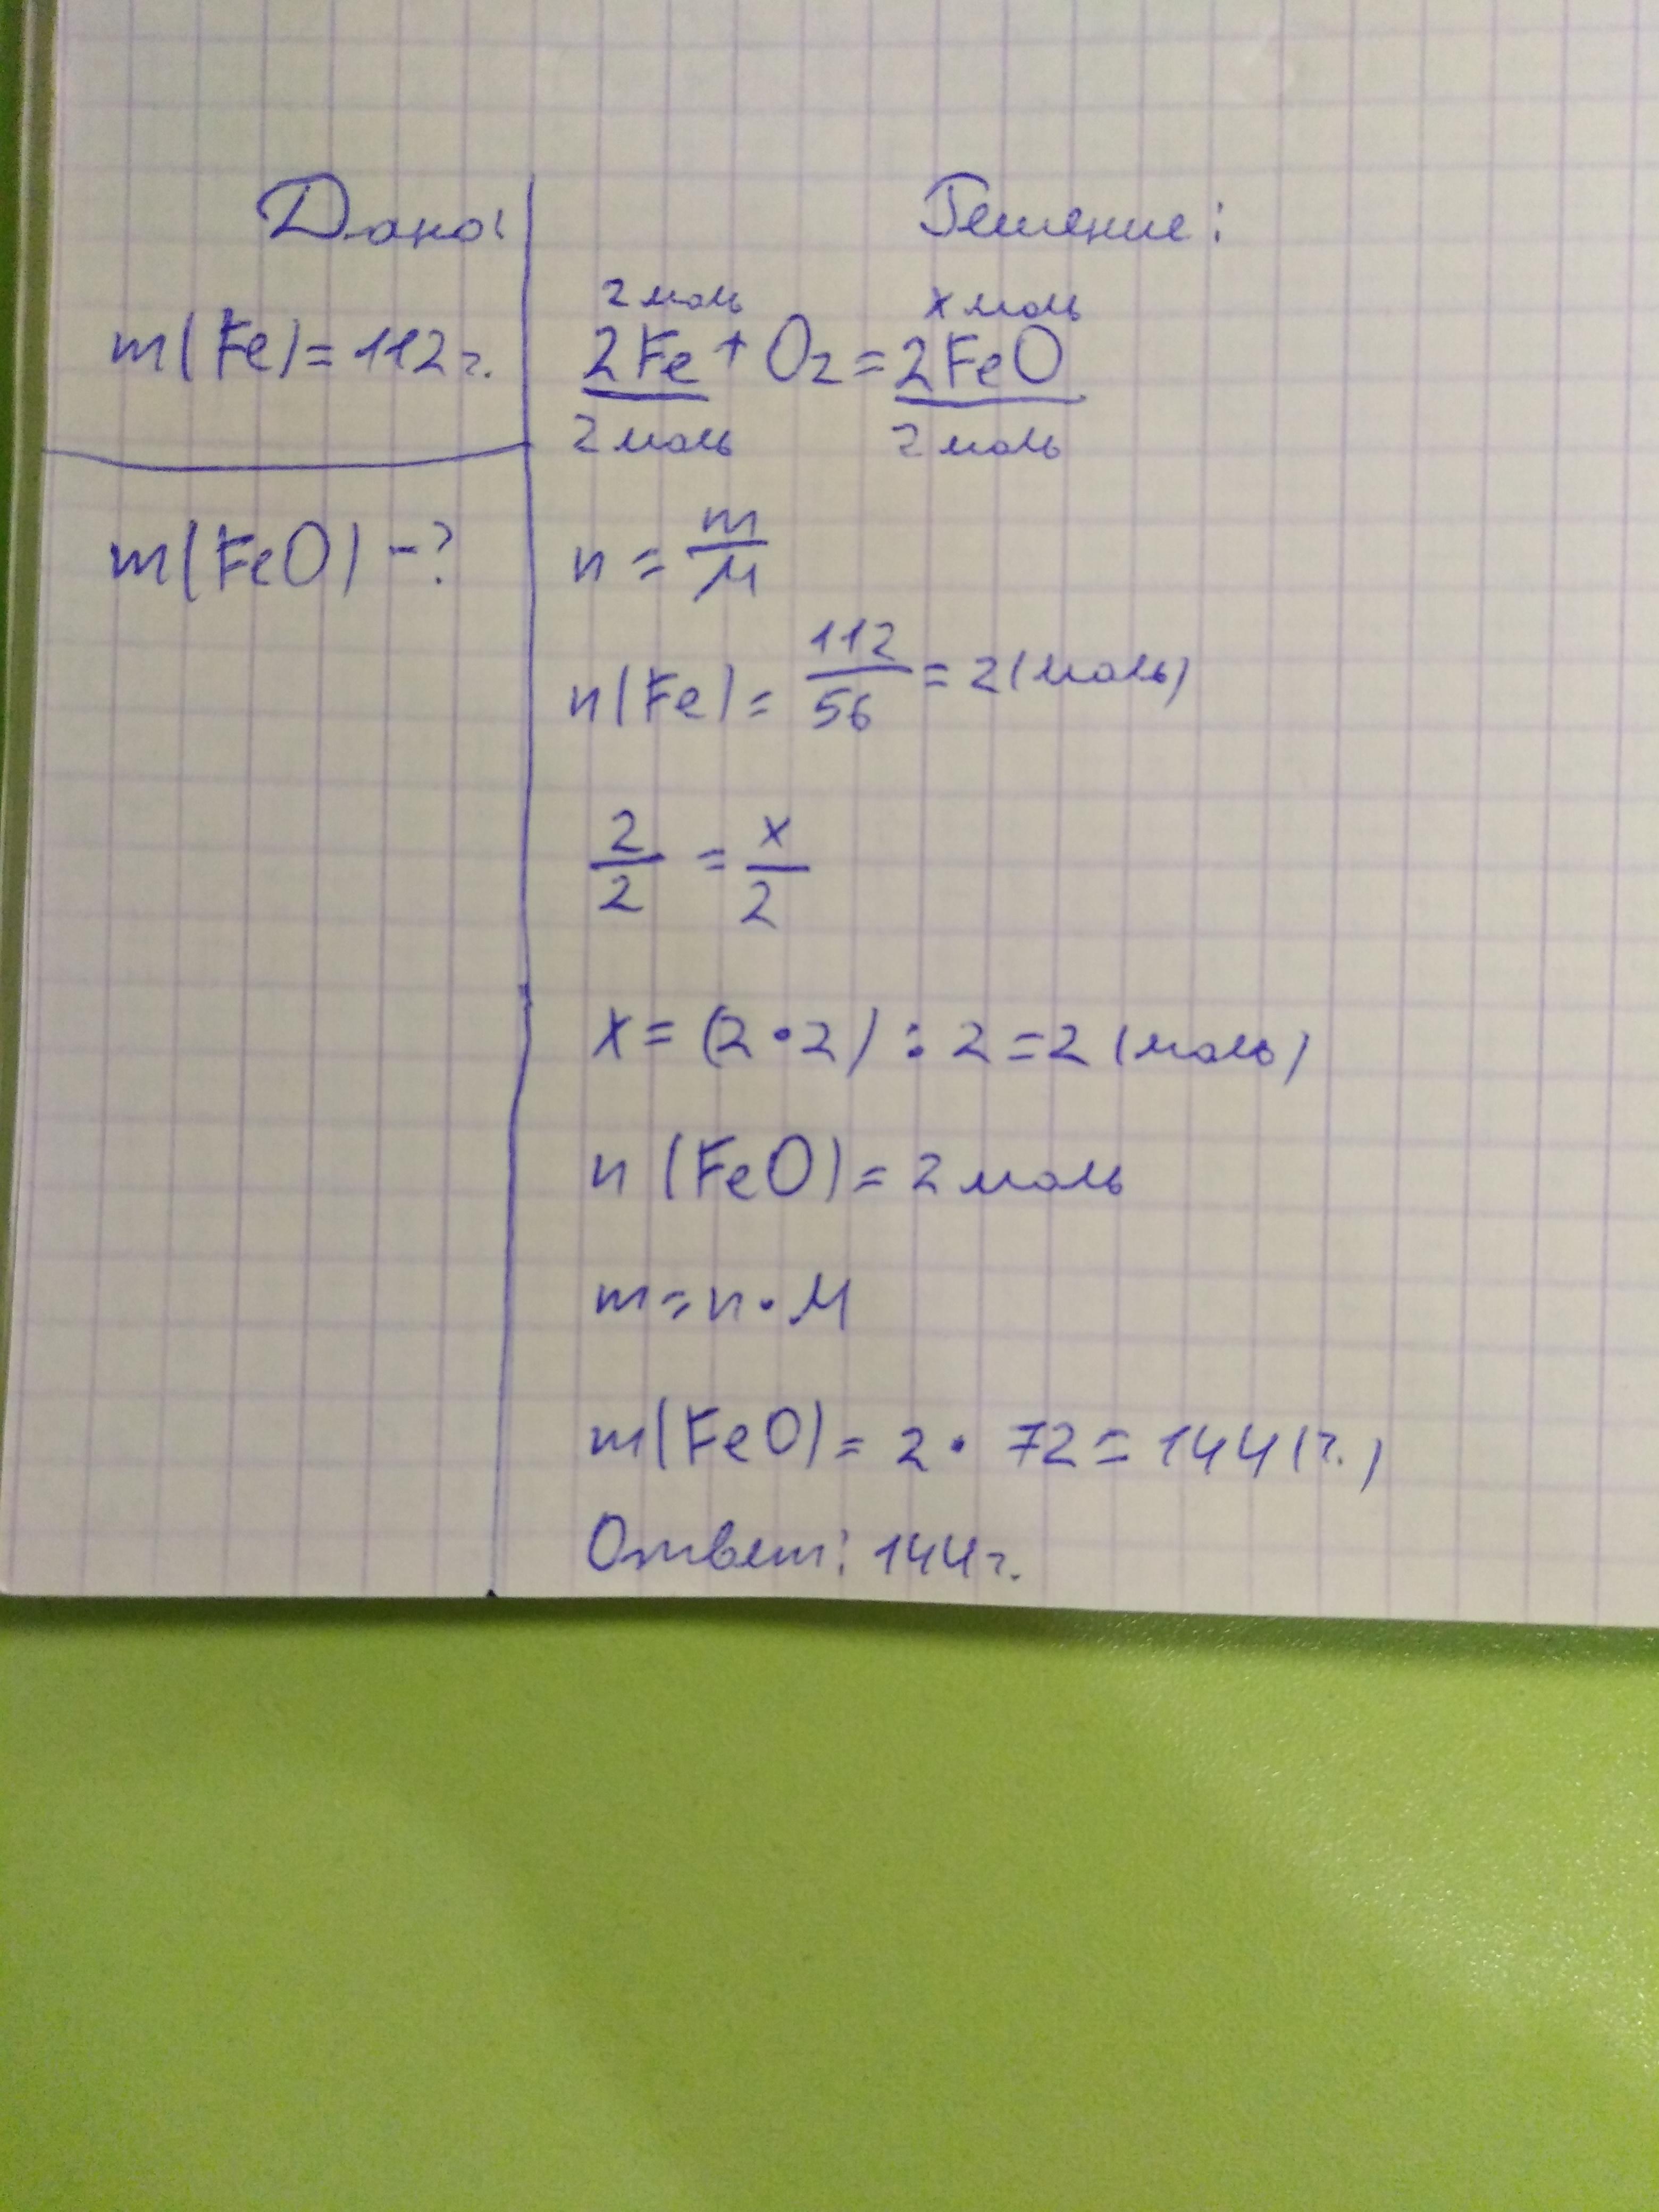 Дано:
m(Fe)=112г.
m(FeO)-?
Решение:
2 моль x моль
2Fe + O₂ = 2FeO
2 моль 2 моль
n = m/M
n(Fe) = 112/56 = 2(моль)
2/2 = x/2
x = (2•2) : 2 = 2 (моль)
n (FeO) = 2 моль
m = n • M
m(FeO) = 2 • 72 = 144(г.)
Ответ: 144г.